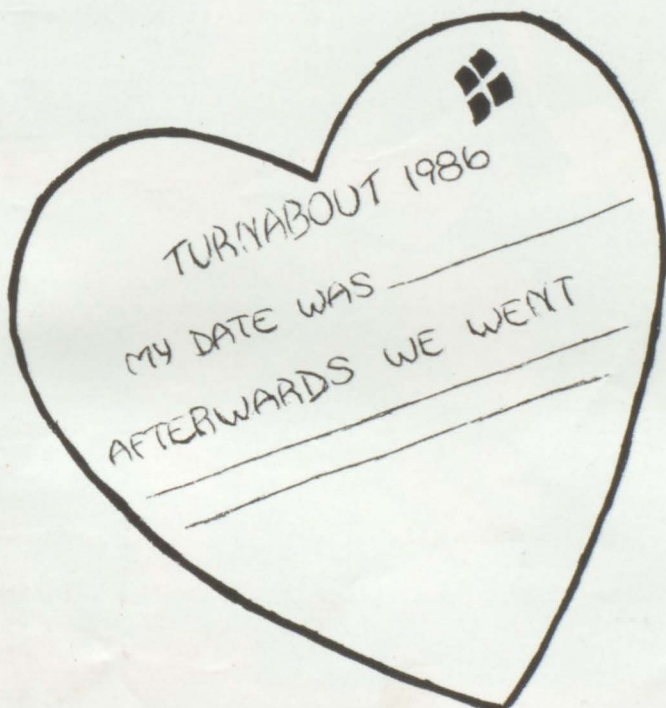 TURNABOUT 1986
MY DATE WAS
AFTERWARDS WE WENT